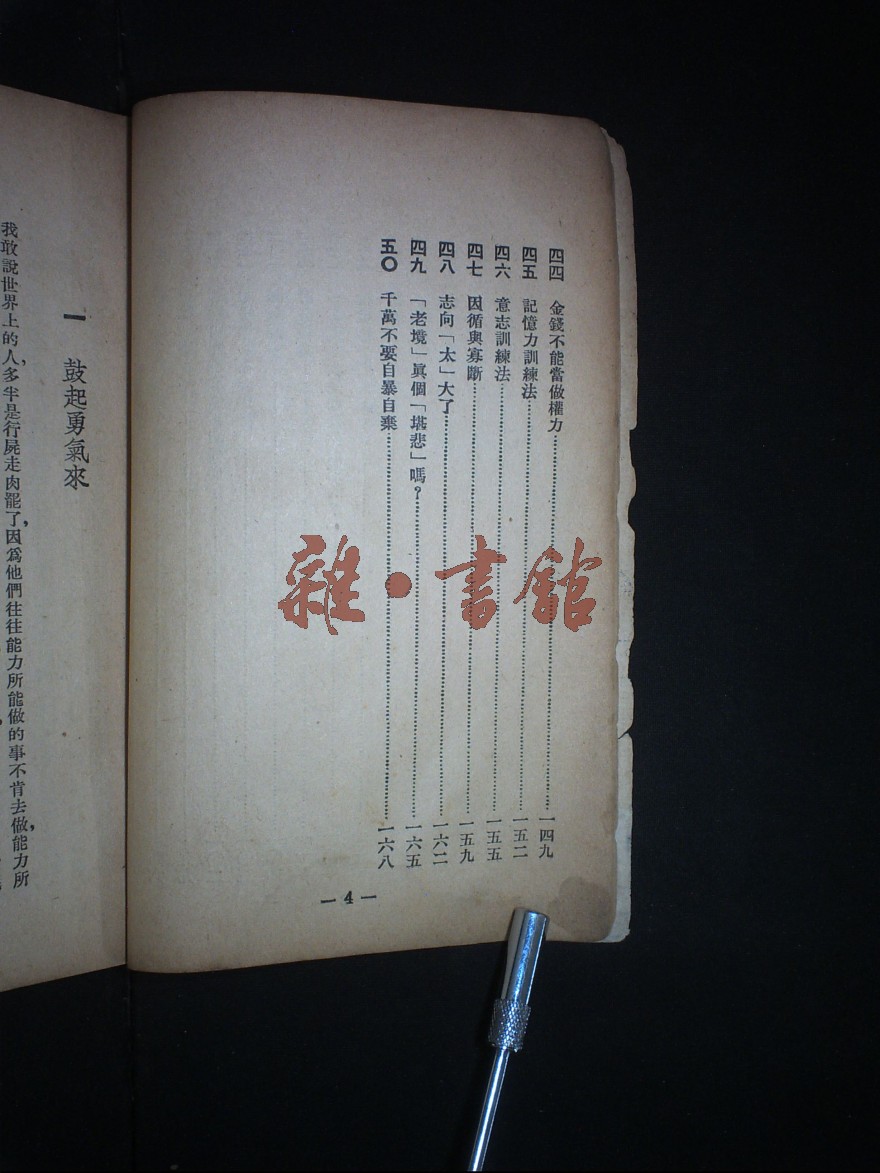 四四 金錢不能當做權力……一四九
四五 記憶力訓練法……一五二
四六 意志訓練法……一五五
四七 因循與寡斷……一五九
四八 志向「太」大了……一六二
四九 「老境」眞個「堪悲」嗎？……一六五
五〇 千萬不要自暴自棄……一六八
— 4 —
雜·書館
一 鼓起勇氣來
我敢說世界上的人，多半是行屍走肉罷了，因爲他們往往能力所能做的事不肯去做，能力所